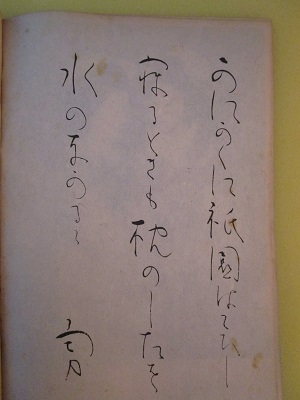 かにかくに祇園はこひし
寝るときも枕のしたを
水のなかるゝ
勇